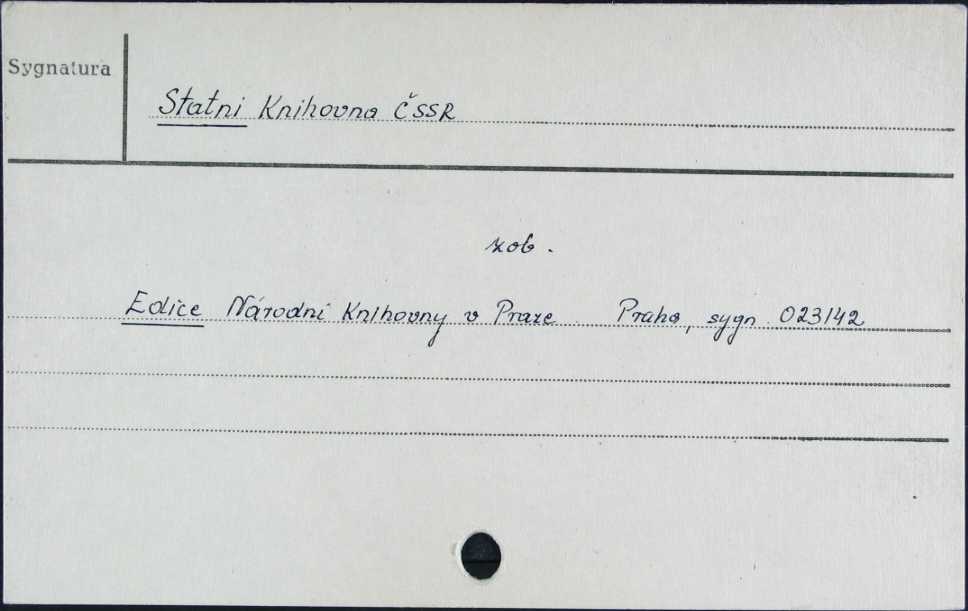 Sygnatura
Statni Knihovna ČSSR
zob.
Edice Národni Knihovny v Praze. Praha, sygn. 023142